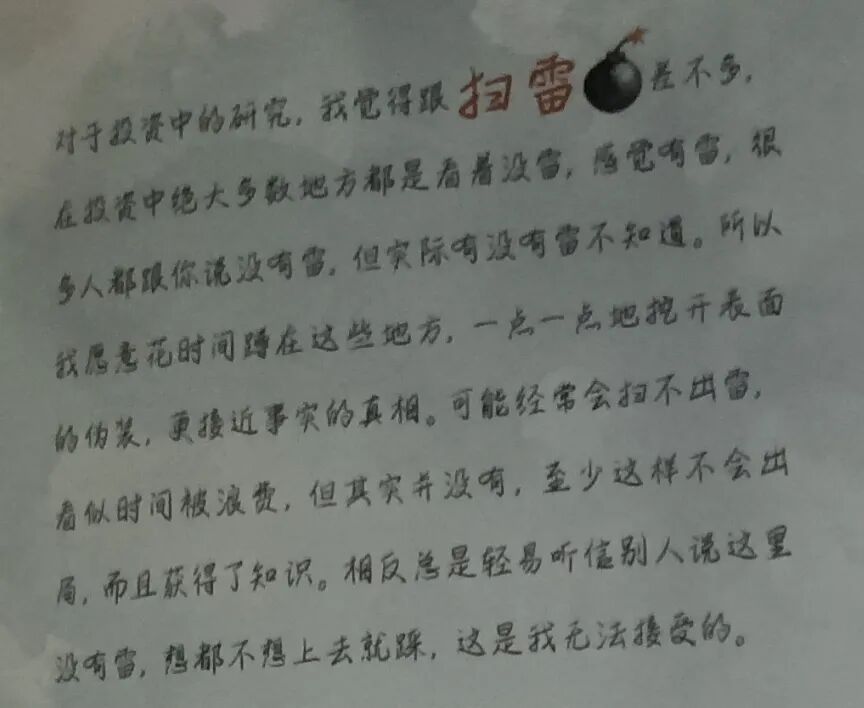 对于投资中的研究，我觉得跟扫雷差不多，
在投资中绝大多数地方都是看着没雷，感觉有雷，很
多人都跟你说没有雷，但实际有没有雷不知道。所以
我愿意花时间蹲在这些地方，一点一点地挖开表面
的伪装，更接近事实的真相。可能经常会扫不出雷，
看似时间被浪费，但其实并没有，至少这样不会出
局，而且获得了知识。相反总是轻易听信别人说这里
没有雷，想都不想上去就踩，这是我无法接受的。